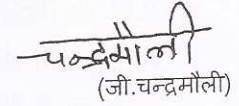 चन्द्रमौली
(जी.चन्द्रमौली)